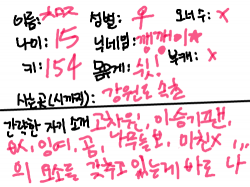 이름: 성별: 우 오너수: x
나이: 15 닉네임: 깽깽이☆
키: 154 몸무게: 쉿! 북캐: x
사는곳(시까지): 강원도 속초
간략한 자기 소개 고차원, 이승기팬,
잉여, 곰, 나무늘보, 미친x
의 요소를 갖추고 있는게 바로 나